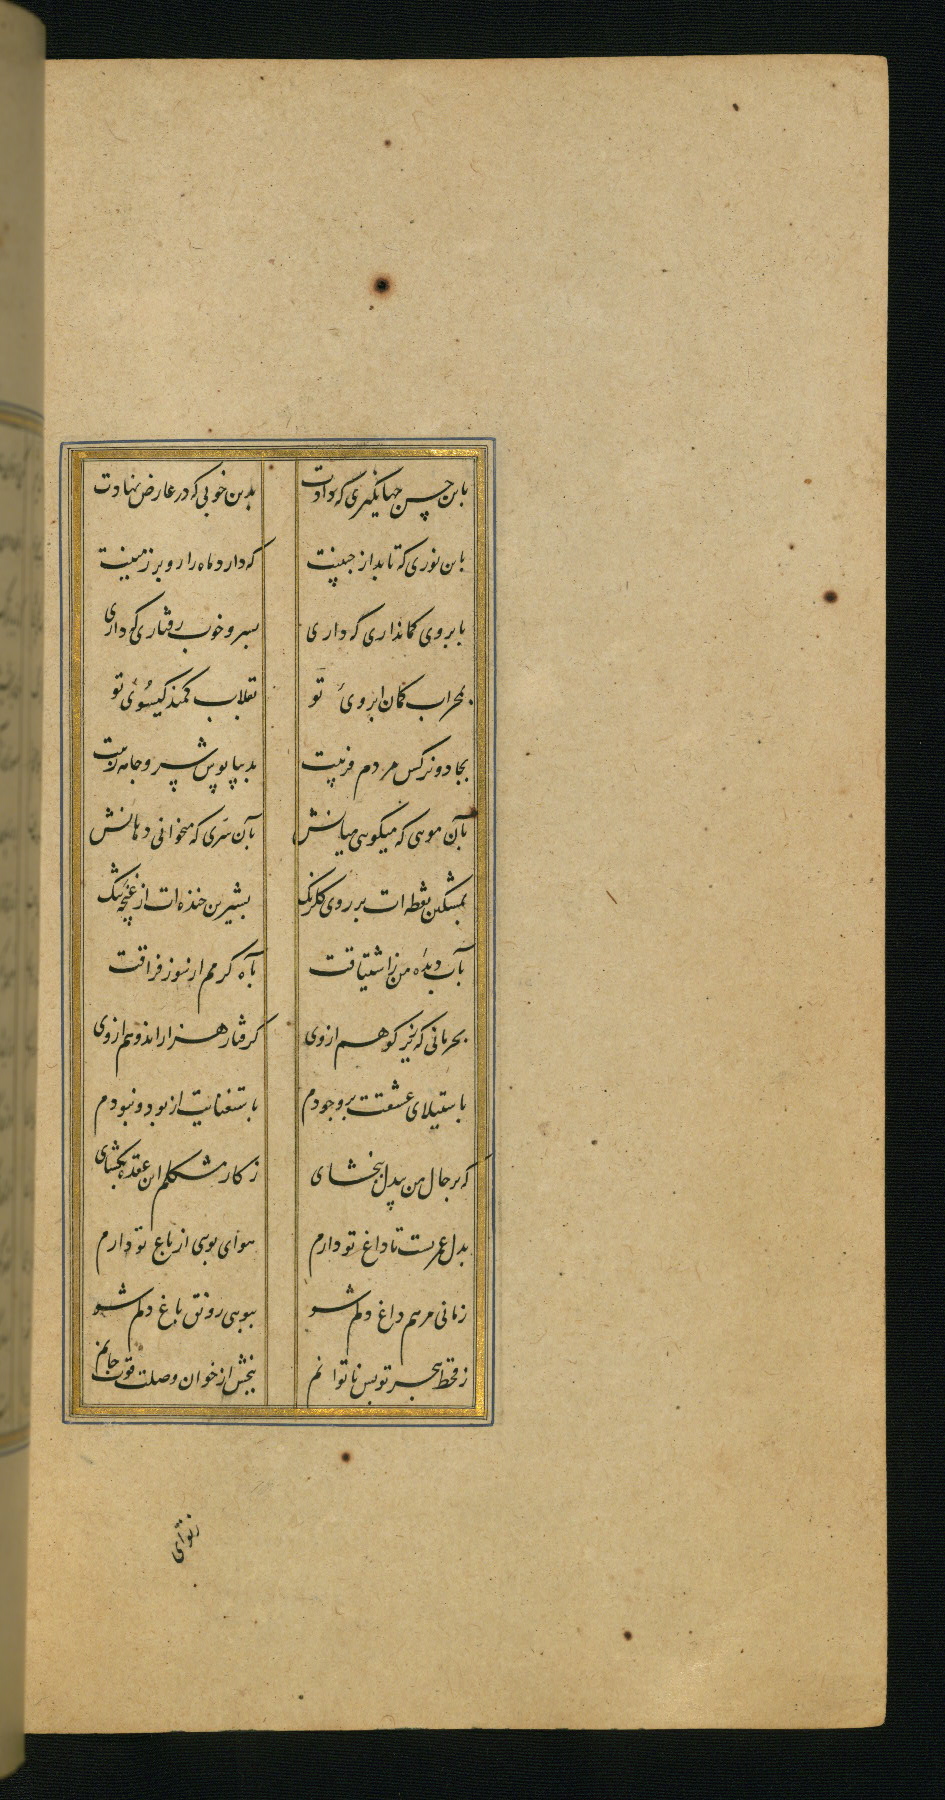 باین حسن جهانگیری که دادت بدین خوبی که در عارض نهادت
باین نوری که تابد از جبینت که دارد ماه را رو بر زمینت
بابروی کمانداری که داری بسرو خوب رفتاری که داری
بمحراب کمان ابروی تو بقلاب کمند گیسوی تو
بجادو نرگس مردم فریبت بدیبا پوش سرو جامه زیبت
بآن مویی که میگویی میانش بآن سری که میخوانی دهانش
بمشکین نقطه ات بر روی گلرنگ بشیرین خنده ات از غنچه تنگ
بآب دیده من ز اشتیاقت بآه گرمم از سوز فراقت
بحرمانی که زیر کوهم از وی گرفتار هزار اندوهم از وی
باستیلای عشقت بر وجودم باستغنایت از بود و نبودم
که بر حال من بیدل ببخشای ز کار مشکلم این عقده بگشای
بدل عمریست تا داغ تو دارم هوای بویی از باغ تو دارم
زمانی مرهم داغ دلم شو ببویی رونق باغ دلم شو
ز قحط هجر تو بس ناتوانم ببخش از خوان وصلت قوت جانم